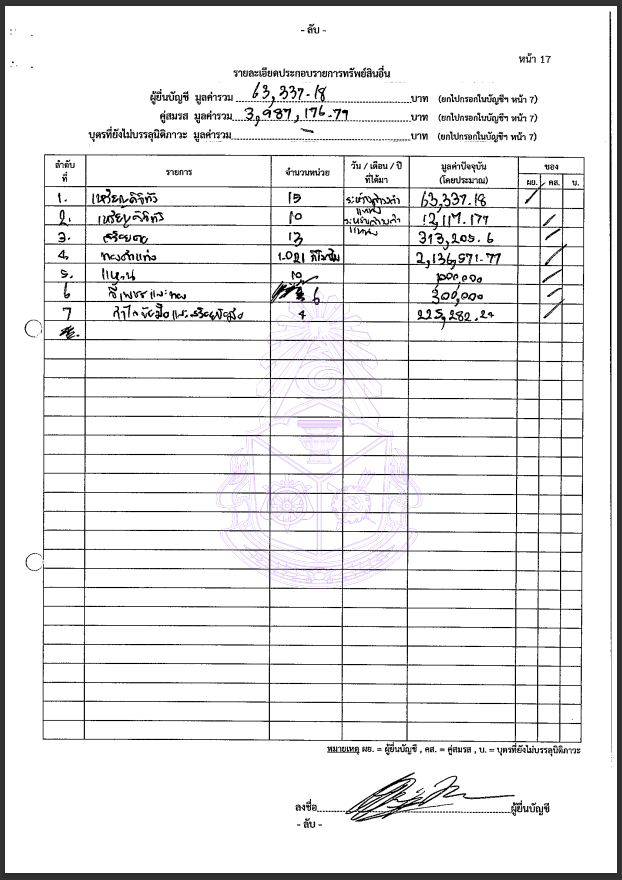 - ลับ -
หน้า 17
รายละเอียดประกอบรายการทรัพย์สินอื่น
ผู้ยื่นบัญชี มูลค่ารวม 63,337.18 บาท (ยกไปกรอกในบัญชีฯ หน้า 7)
คู่สมรส มูลค่ารวม 3,987,176.79 บาท (ยกไปกรอกในบัญชีฯ หน้า 7)
บุตรที่ยังไม่บรรลุนิติภาวะ มูลค่ารวม - บาท (ยกไปกรอกในบัญชีฯ หน้า 7)
ลำดับที่ รายการ จำนวนหน่วย วัน / เดือน / ปี ที่ได้มา มูลค่าปัจจุบัน (โดยประมาณ) ของ
ผย. คส. บ.
1. เหรียญดิจิทัล 15 63,337.18 /
2. เหรียญดิจิทัล 10 /
3. สร้อยคอ 13 313,205.6 /
4. ทองคำแท่ง 1.021 กิโลกรัม 2,136,571.77 /
5. แหวน 10 /
6 6 300,000 /
7 กำไลข้อมือและสร้อยข้อมือ 4 225,282.24 /
หมายเหตุ ผย. = ผู้ยื่นบัญชี , คส. = คู่สมรส , บ. = บุตรที่ยังไม่บรรลุนิติภาวะ
ลงชื่อ ผู้ยื่นบัญชี
- ลับ -